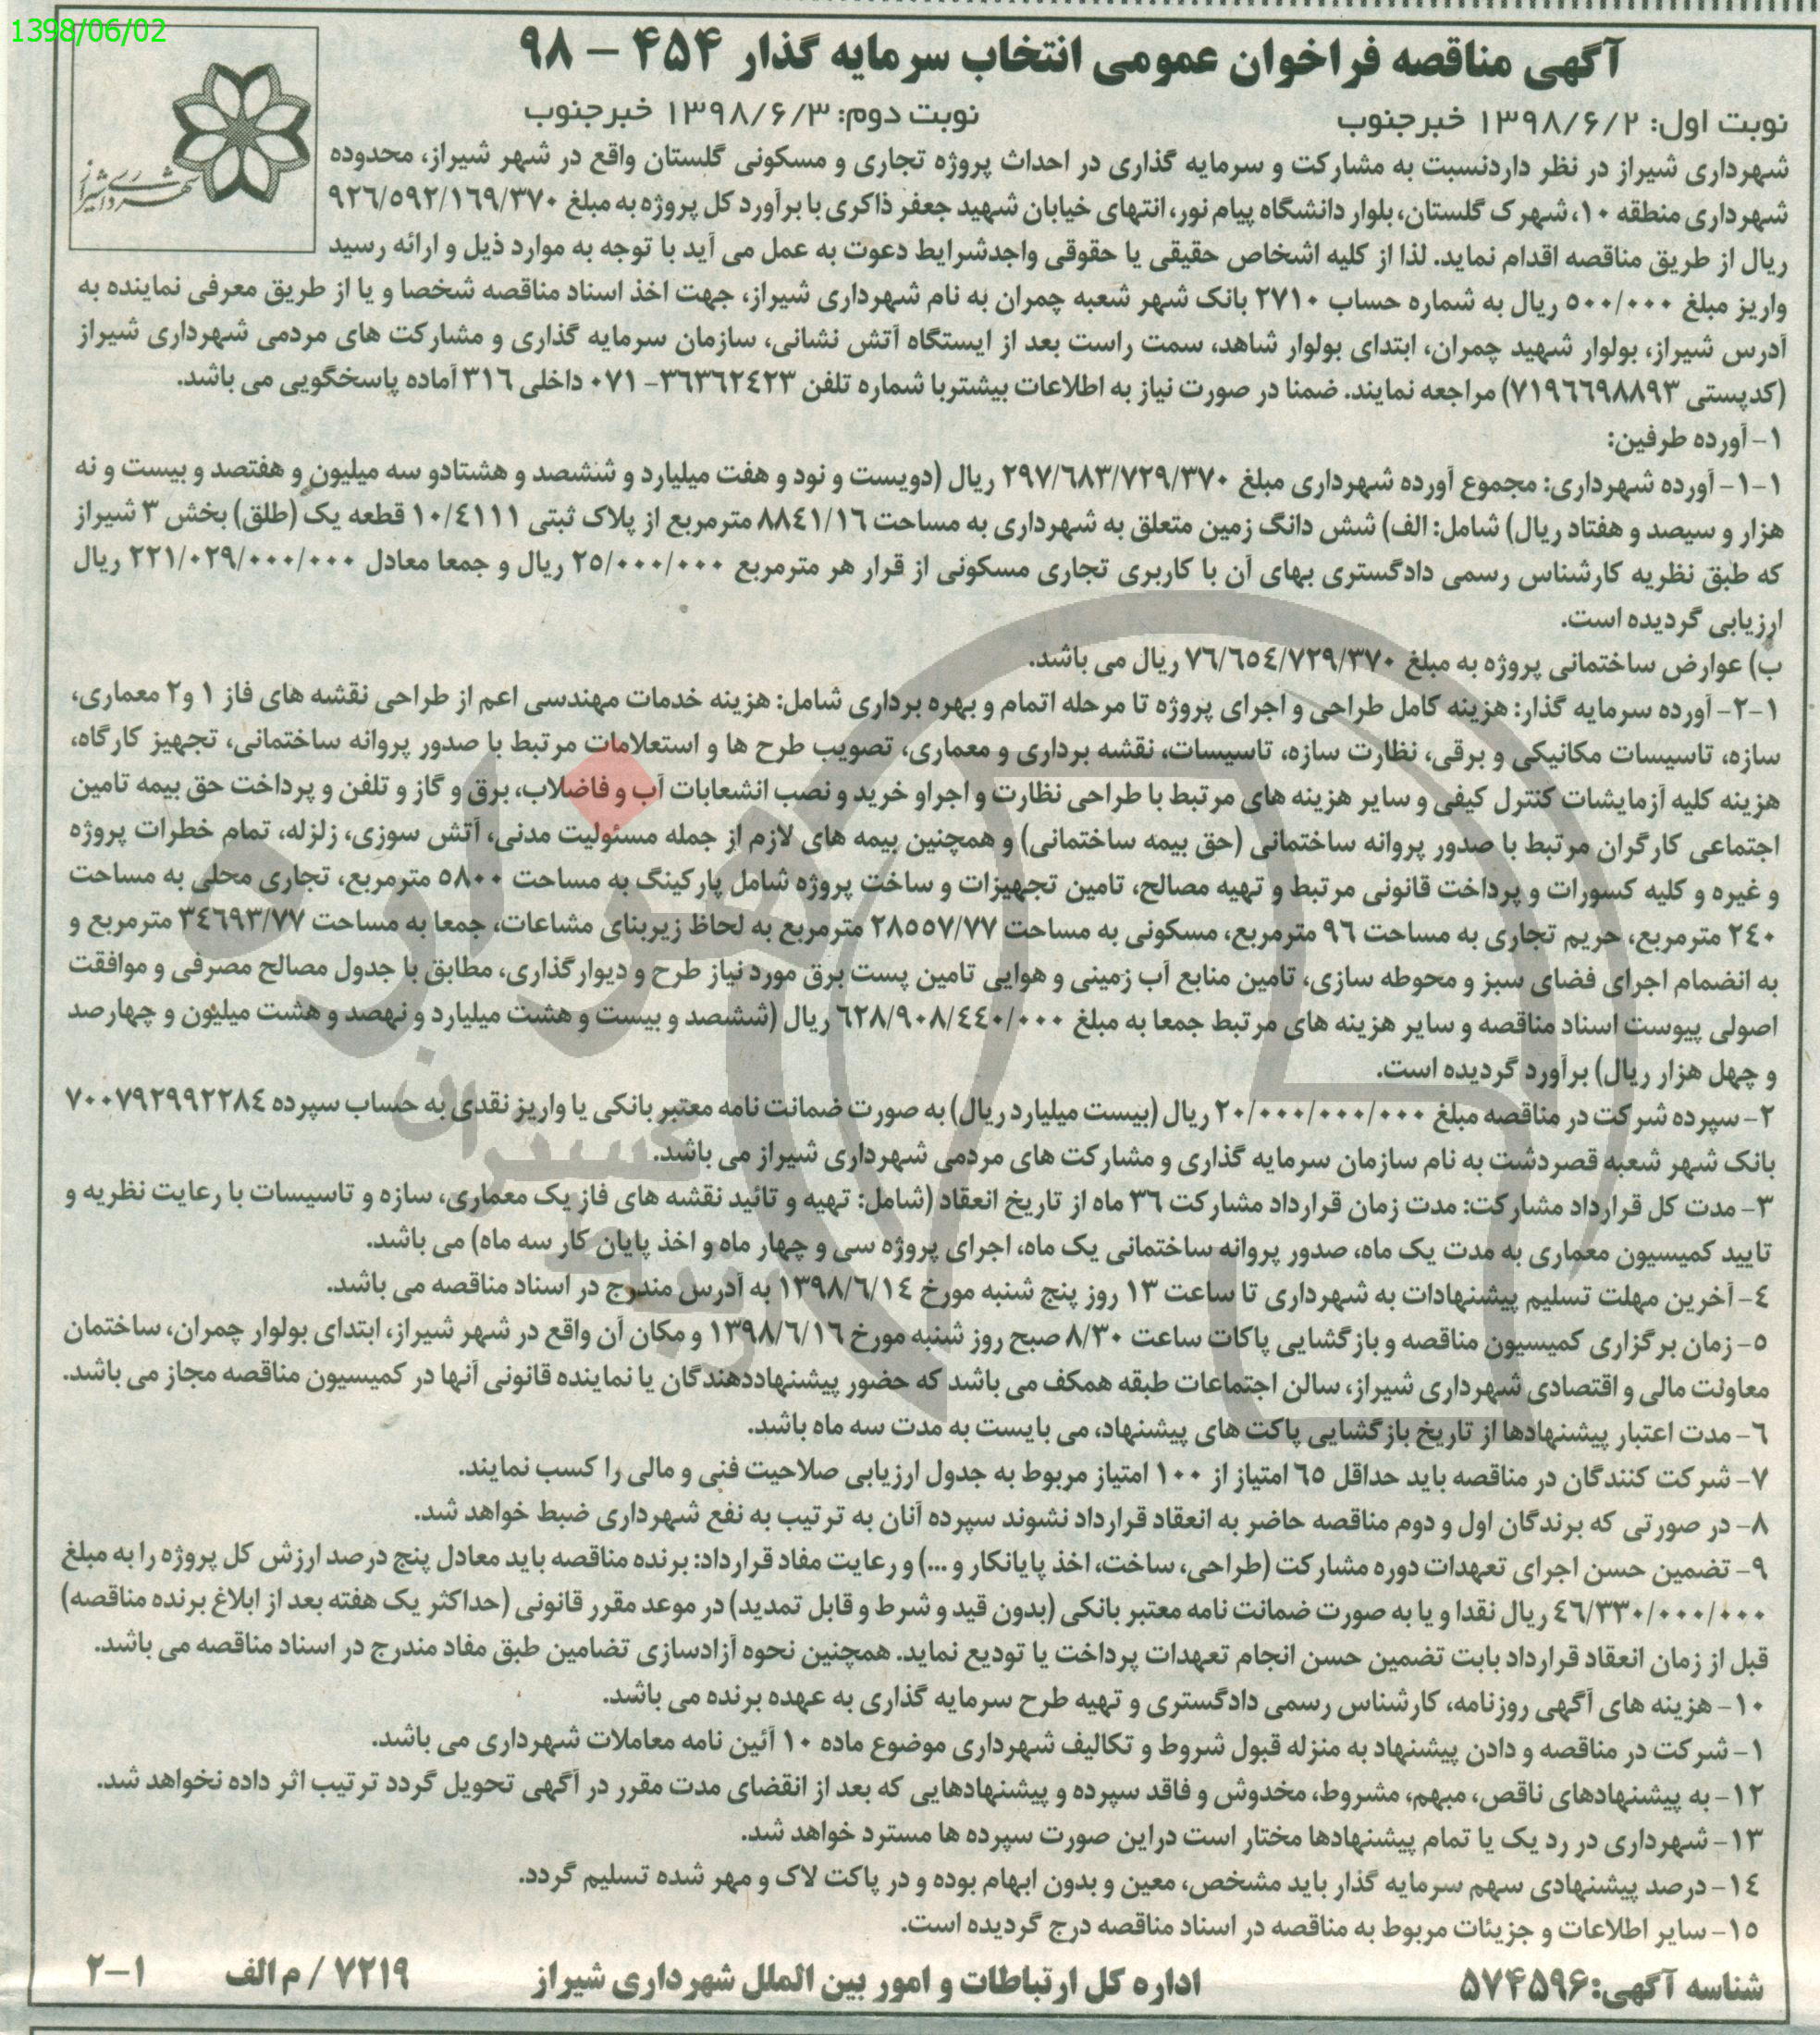 1398/06/02
آگهی مناقصه فراخوان عمومی انتخاب سرمایه گذار ۴۵۴ – ۹۸
نوبت اول: ۱۳۹۸/۶/۲ خبرجنوب نوبت دوم: ۱۳۹۸/۶/۳ خبرجنوب
شهرداری شیراز
شهرداری شیراز در نظر داردنسبت به مشارکت و سرمایه گذاری در احداث پروژه تجاری و مسکونی گلستان واقع در شهر شیراز، محدوده
شهرداری منطقه ۱۰، شهرک گلستان، بلوار دانشگاه پیام نور، انتهای خیابان شهید جعفر ذاکری با برآورد کل پروژه به مبلغ ۹۲۶/۵۹۲/۱۶۹/۳۷۰
ریال از طریق مناقصه اقدام نماید. لذا از کلیه اشخاص حقیقی یا حقوقی واجدشرایط دعوت به عمل می آید با توجه به موارد ذیل و ارائه رسید
واریز مبلغ ۵۰۰/۰۰۰ ریال به شماره حساب ۲۷۱۰ بانک شهر شعبه چمران به نام شهرداری شیراز، جهت اخذ اسناد مناقصه شخصا و یا از طریق معرفی نماینده به
آدرس شیراز، بولوار شهید چمران، ابتدای بولوار شاهد، سمت راست بعد از ایستگاه آتش نشانی، سازمان سرمایه گذاری و مشارکت های مردمی شهرداری شیراز
(کدپستی ۷۱۹۶۶۹۸۸۹۳) مراجعه نمایند. ضمنا در صورت نیاز به اطلاعات بیشتربا شماره تلفن ۳۶۳۶۲۴۲۳- ۰۷۱ داخلی ۳۱۶ آماده پاسخگویی می باشد.
۱- آورده طرفین:
۱-۱- آورده شهرداری: مجموع آورده شهرداری مبلغ ۲۹۷/۶۸۳/۷۲۹/۳۷۰ ریال (دویست و نود و هفت میلیارد و ششصد و هشتادو سه میلیون و هفتصد و بیست و نه
هزار و سیصد و هفتاد ریال) شامل: الف) شش دانگ زمین متعلق به شهرداری به مساحت ۸۸۴۱/۱۶ مترمربع از پلاک ثبتی ۱۰/۴۱۱۱ قطعه یک (طلق) بخش ۳ شیراز
که طبق نظریه کارشناس رسمی دادگستری بهای آن با کاربری تجاری مسکونی از قرار هر مترمربع ۲۵/۰۰۰/۰۰۰ ریال و جمعا معادل ۲۲۱/۰۲۹/۰۰۰/۰۰۰ ریال
ارزیابی گردیده است.
ب) عوارض ساختمانی پروژه به مبلغ ۷۶/۶۵۴/۷۲۹/۳۷۰ ریال می باشد.
۱-۲- آورده سرمایه گذار: هزینه کامل طراحی و اجرای پروژه تا مرحله اتمام و بهره برداری شامل: هزینه خدمات مهندسی اعم از طراحی نقشه های فاز ۱ و۲ معماری،
سازه، تاسیسات مکانیکی و برقی، نظارت سازه، تاسیسات، نقشه برداری و معماری، تصویب طرح ها و استعلامات مرتبط با صدور پروانه ساختمانی، تجهیز کارگاه،
هزینه کلیه آزمایشات کنترل کیفی و سایر هزینه های مرتبط با طراحی نظارت و اجراو خرید و نصب انشعابات آب و فاضلاب، برق و گاز و تلفن و پرداخت حق بیمه تامین
اجتماعی کارگران مرتبط با صدور پروانه ساختمانی (حق بیمه ساختمانی) و همچنین بیمه های لازم از جمله مسئولیت مدنی، آتش سوزی، زلزله، تمام خطرات پروژه
و غیره و کلیه کسورات و پرداخت قانونی مرتبط و تهیه مصالح، تامین تجهیزات و ساخت پروژه شامل پارکینگ به مساحت ۵۸۰۰ مترمربع، تجاری محلی به مساحت
۲۴۰ مترمربع، حریم تجاری به مساحت ۹۶ مترمربع، مسکونی به مساحت ۲۸۵۵۷/۷۷ مترمربع به لحاظ زیربنای مشاعات، جمعا به مساحت ۳۴۶۹۳/۷۷ مترمربع و
به انضمام اجرای فضای سبز و محوطه سازی، تامین منابع آب زمینی و هوایی تامین پست برق مورد نیاز طرح و دیوارگذاری، مطابق با جدول مصالح مصرفی و موافقت
اصولی پیوست اسناد مناقصه و سایر هزینه های مرتبط جمعا به مبلغ ۶۲۸/۹۰۸/۴۴۰/۰۰۰ ریال (ششصد و بیست و هشت میلیارد و نهصد و هشت میلیون و چهارصد
و چهل هزار ریال) برآورد گردیده است.
۲- سپرده شرکت در مناقصه مبلغ ۲۰/۰۰۰/۰۰۰/۰۰۰ ریال (بیست میلیارد ریال) به صورت ضمانت نامه معتبر بانکی یا واریز نقدی به حساب سپرده ۷۰۰۷۹۲۹۹۲۲۸۴
بانک شهر شعبه قصردشت به نام سازمان سرمایه گذاری و مشارکت های مردمی شهرداری شیراز می باشد.
۳- مدت کل قرارداد مشارکت: مدت زمان قرارداد مشارکت ۳۶ ماه از تاریخ انعقاد (شامل: تهیه و تائید نقشه های فاز یک معماری، سازه و تاسیسات با رعایت نظریه و
تایید کمیسیون معماری به مدت یک ماه، صدور پروانه ساختمانی یک ماه، اجرای پروژه سی و چهار ماه و اخذ پایان کار سه ماه) می باشد.
۴- آخرین مهلت تسلیم پیشنهادات به شهرداری تا ساعت ۱۳ روز پنج شنبه مورخ ۱۳۹۸/۶/۱۴ به آدرس مندرج در اسناد مناقصه می باشد.
۵- زمان برگزاری کمیسیون مناقصه و بازگشایی پاکات ساعت ۸/۳۰ صبح روز شنبه مورخ ۱۳۹۸/۶/۱۶ و مکان آن واقع در شهر شیراز، ابتدای بولوار چمران، ساختمان
معاونت مالی و اقتصادی شهرداری شیراز، سالن اجتماعات طبقه همکف می باشد که حضور پیشنهاددهندگان یا نماینده قانونی آنها در کمیسیون مناقصه مجاز می باشد.
۶- مدت اعتبار پیشنهادها از تاریخ بازگشایی پاکت های پیشنهاد، می بایست به مدت سه ماه باشد.
۷- شرکت کنندگان در مناقصه باید حداقل ۶۵ امتیاز از ۱۰۰ امتیاز مربوط به جدول ارزیابی صلاحیت فنی و مالی را کسب نمایند.
۸- در صورتی که برندگان اول و دوم مناقصه حاضر به انعقاد قرارداد نشوند سپرده آنان به ترتیب به نفع شهرداری ضبط خواهد شد.
۹- تضمین حسن اجرای تعهدات دوره مشارکت (طراحی، ساخت، اخذ پایانکار و ...) و رعایت مفاد قرارداد: برنده مناقصه باید معادل پنج درصد ارزش کل پروژه را به مبلغ
۴۶/۳۳۰/۰۰۰/۰۰۰ ریال نقدا و یا به صورت ضمانت نامه معتبر بانکی (بدون قید و شرط و قابل تمدید) در موعد مقرر قانونی (حداکثر یک هفته بعد از ابلاغ برنده مناقصه)
قبل از زمان انعقاد قرارداد بابت تضمین حسن انجام تعهدات پرداخت یا تودیع نماید. همچنین نحوه آزادسازی تضامین طبق مفاد مندرج در اسناد مناقصه می باشد.
۱۰- هزینه های آگهی روزنامه، کارشناس رسمی دادگستری و تهیه طرح سرمایه گذاری به عهده برنده می باشد.
۱- شرکت در مناقصه و دادن پیشنهاد به منزله قبول شروط و تکالیف شهرداری موضوع ماده ۱۰ آئین نامه معاملات شهرداری می باشد.
۱۲- به پیشنهادهای ناقص، مبهم، مشروط، مخدوش و فاقد سپرده و پیشنهادهایی که بعد از انقضای مدت مقرر در آگهی تحویل گردد ترتیب اثر داده نخواهد شد.
۱۳- شهرداری در رد یک یا تمام پیشنهادها مختار است دراین صورت سپرده ها مسترد خواهد شد.
۱۴- درصد پیشنهادی سهم سرمایه گذار باید مشخص، معین و بدون ابهام بوده و در پاکت لاک و مهر شده تسلیم گردد.
۱۵- سایر اطلاعات و جزیئات مربوط به مناقصه در اسناد مناقصه درج گردیده است.
شناسه آگهی:۵۷۴۵۹۶ اداره کل ارتباطات و امور بین الملل شهرداری شیراز ۷۲۱۹ / م الف ۲-۱